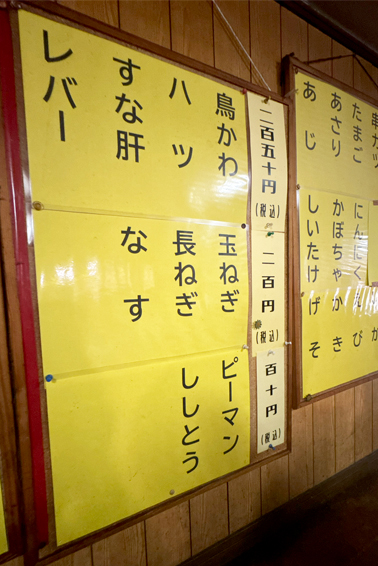 二百五十円
(税込)
鳥かわ
ハツ
すな肝
レバー
二百円
(税込)
玉ねぎ
長ねぎ
なす
百十円
(税込)
ピーマン
ししとう
串カツ
たまご
あさり
あじ
にんにく
かぼちゃ
しいたけ
かき